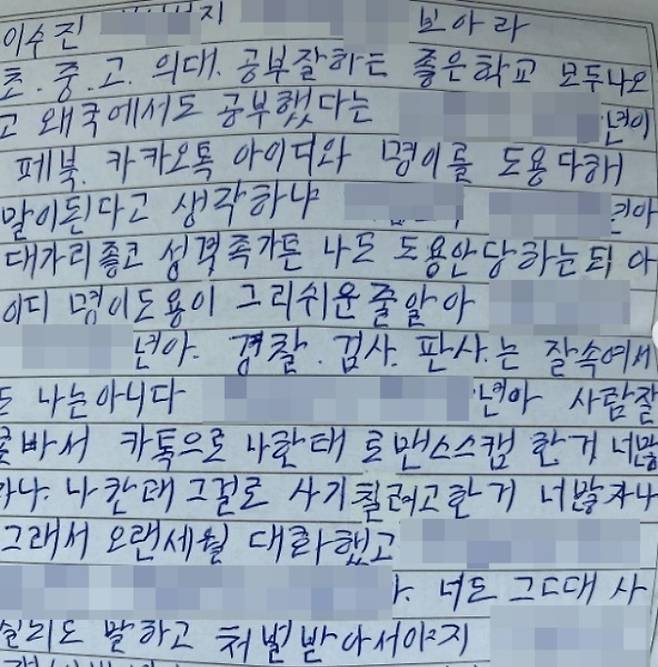 이수진 지 보아라
초.중.고.의대.공부잘하는 좋은학교 모두나오
고 왜국에서도 공부했다는 년이
페북.카카오톡 아이디와 명이를 도용당해
말이된다고 생각하냐 년아
대가리좋코 성격족가튼 나도 도용안당하는되 아
이디 명이도용이 그리쉬운줄알아
년아. 경찰.검사.판사.는 잘속여서
도 나는아니다 년아 사람잘
못봐서 카톡으로 나한태 로맨스스캡 한거 너맞
자나.나한태 그걸로 사기칠려고한거 너맞자나
그래서 오랜세월 대화했고
. 너도 그때 사
실되도 말하고 처벌받아서야지